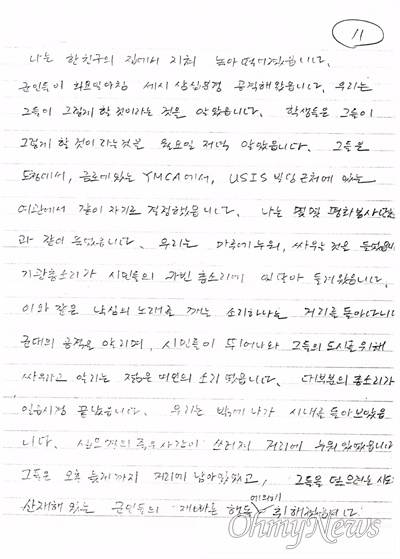 11
나는 한 친구의 집에서 지쳐
군인들이 화요일아침 세시 삼십분경 공격해왔읍니다. 우리는
그들이 그렇게 할 것이라는 것은 알았읍니다. 학생들은 그들이
그렇게 할 것이라는것은 월요일 저녁 알았읍니다. 그들은
도청에서, 금로에있는 YMCA에서, USIS 빌딩 근처에 있는
여관에서 같이 자기로 결정했읍니다. 나는 몇몇 평화봉사단원
과 같이 있었읍니다. 우리는 마루에누워, 싸우는 것은 들었읍니다
기관총소리가 시민들의 카빈 총소리에 잇달아 들려왔읍니다.
이와 같은 낯설의 노래를 깨는 소리하나는 거리를 돌아다니며
군대의 공격을 알리며, 시민들이 뛰어나와 그들의 도시를 위해
싸우라고 알리는 젊은 여인의 소리였읍니다. 대부분의 총소리가
일곱시경 끝났읍니다. 우리는 밖에 나가 시내를 돌아보았읍
니다. 십오명의 죽은사람이 쓰러져 거리에 누워 있었읍니다
그들은 오후 늦게까지 거리에 남아있었고, 그들을 덮으려는 시도는
산재해 있는 군인들의 재빠른 행동에의해 취해졌읍니다.
OhmyNews